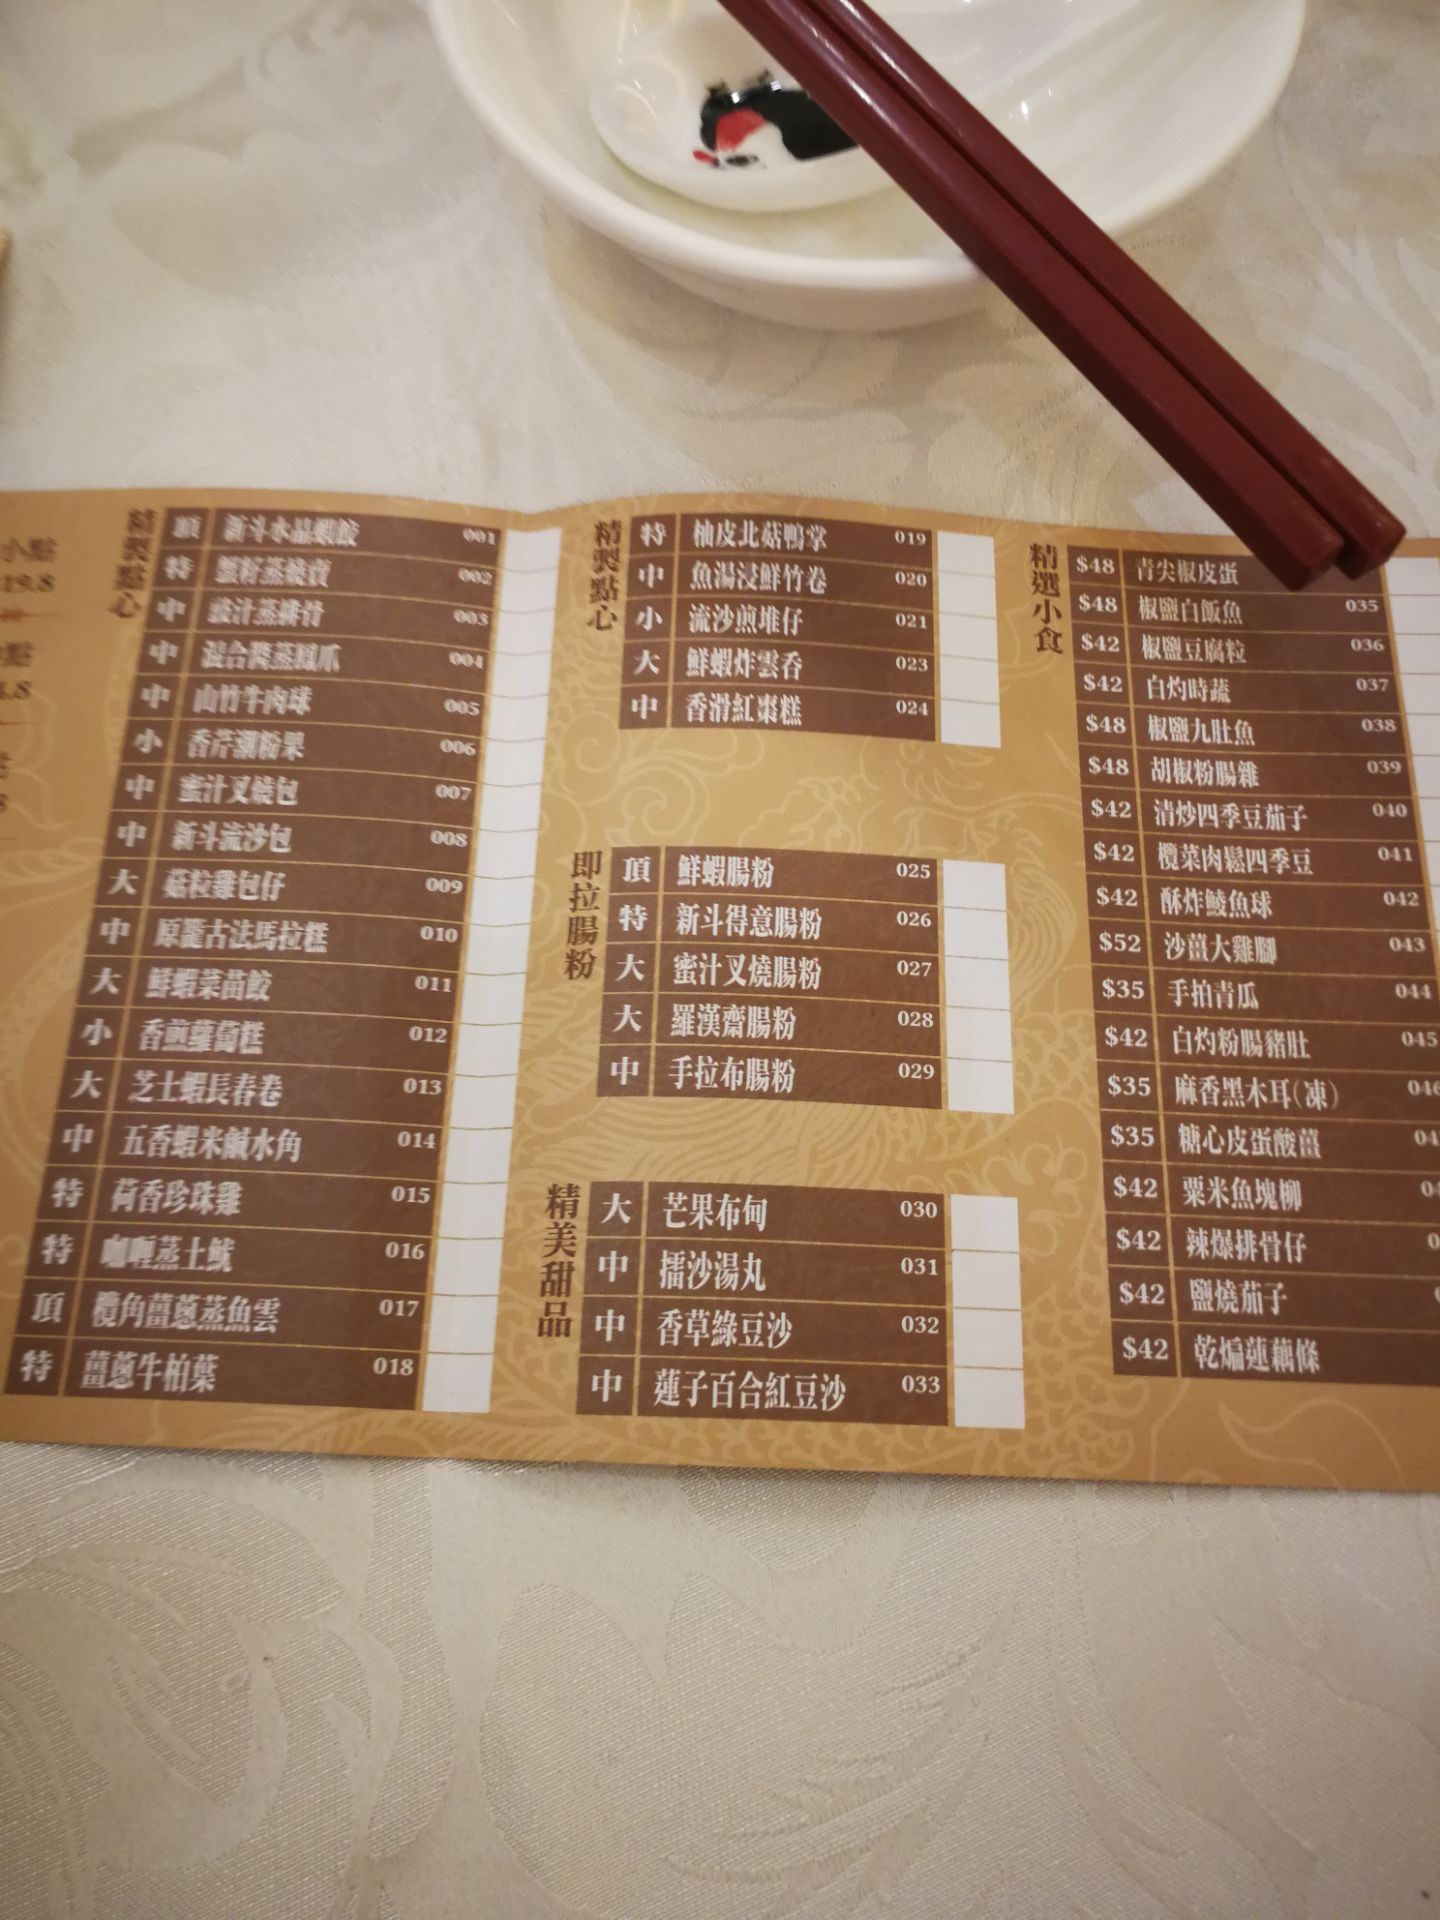 小點
19.8
點
.8
精製點心
頂 新斗水晶蝦餃 001
特 蟹籽蒸燒賣 002
中 豉汁蒸排骨 003
中 混合醬蒸鳳爪 004
中 山竹牛肉球 005
小 香芹潮粉果 006
中 蜜汁叉燒包 007
中 新斗流沙包 008
大 菇粒雞包仔 009
中 原籠古法馬拉糕 010
大 鮮蝦菜苗餃 011
小 香煎蘿蔔糕 012
大 芝士蝦長春卷 013
中 五香蝦米鹹水角 014
特 荷香珍珠雞 015
特 咖喱蒸土魷 016
頂 欖角薑蔥蒸魚雲 017
特 薑蔥牛柏葉 018
精製點心
特 柚皮北菇鴨掌 019
中 魚湯浸鮮竹卷 020
小 流沙煎堆仔 021
大 鮮蝦炸雲吞 023
中 香滑紅棗糕 024
即拉腸粉
頂 鮮蝦腸粉 025
特 新斗得意腸粉 026
大 蜜汁叉燒腸粉 027
大 羅漢齋腸粉 028
中 手拉布腸粉 029
精美甜品
大 芒果布甸 030
中 擂沙湯丸 031
中 香草綠豆沙 032
中 蓮子百合紅豆沙 033
精選小食
$48 青尖椒皮蛋
$48 椒鹽白飯魚 035
$42 椒鹽豆腐粒 036
$42 白灼時蔬 037
$48 椒鹽九肚魚 038
$48 胡椒粉腸雜 039
$42 清炒四季豆茄子 040
$42 欖菜肉鬆四季豆 041
$42 酥炸鯪魚球 042
$52 沙薑大雞腳 043
$35 手拍青瓜 044
$42 白灼粉腸豬肚 045
$35 麻香黑木耳(凍) 046
$35 糖心皮蛋酸薑 04
$42 粟米魚塊柳 04
$42 辣爆排骨仔 0
$42 鹽燒茄子
$42 乾煸蓮藕條